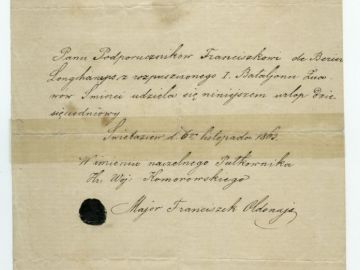 Panu Podporucznikowi Franciszkowi de Berier
Longhamps, z rozpuszczonego I. Bataljonu Żua-
wów Śmierci udziela się niniejszem urlop dzie-
sięciodniowy
d 6go listopada 1863.
W imieniu naczelnego Pułkownika
Hr. Woj: Komorowskiego
Major Franciszek